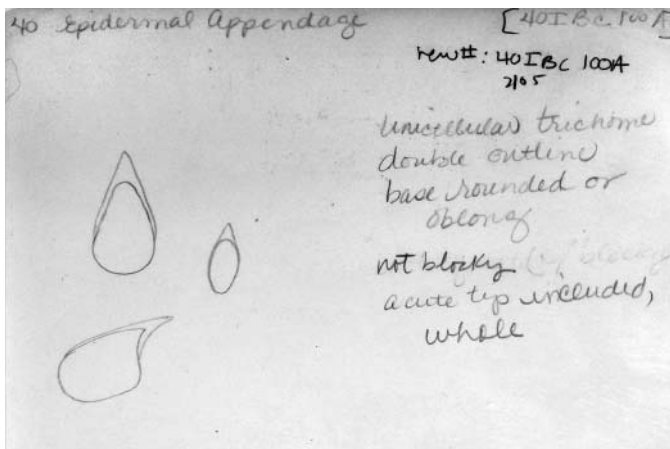 40 Epidermal Appendage [40IBc.100A]
new#: 40IBC 100A
2/05
Unicellular trichome
double outline
base rounded or
oblong
not blocky
acute tip included,
whole